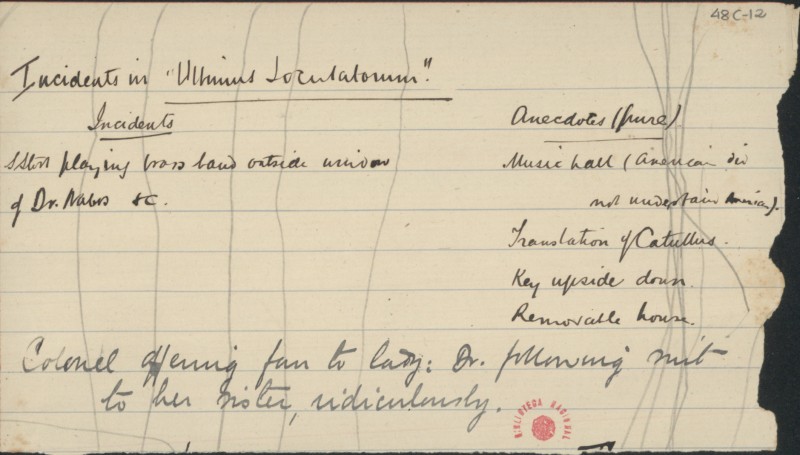 48C-12
Incidents in "Ultimus Joculatorum".
Incidents
playing brass band outside window
of Dr. Nabos &c.
Anecdotes (pure)
Music hall (American did
not understand American).
Translation of Catullus.
Key upside down.
Removable house.
Colonel offering fan to lady: Dr. following suit
to her sister, ridiculously.
BIBLIOTECA NACIONAL